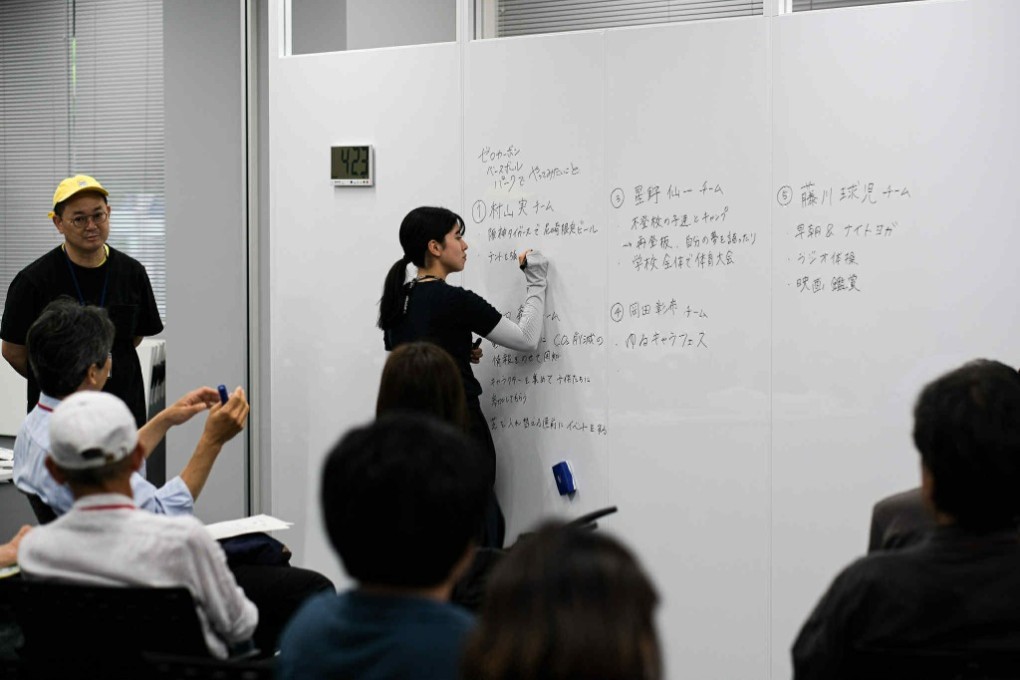 4:23
ゼロカーボン
ベースボール
パークで やってみたいこと
① 村山実 チーム
阪神タイガースで 尼崎限定ビール
テントを張
チーム
CO₂削減の
情報をのせて周知
キャラクターを集めて 子供たちに
芝を入れ替える直前に イベントをする
③ 星野 仙一 チーム
・不登校の子達とキャンプ
→ 再登板、自分の夢を語ったり
・学校全体で体育大会
④ 岡田 彰布 チーム
・ゆるキャラフェス
⑤ 藤川 球児 チーム
・早朝 & ナイトヨガ
・ラジオ体操
・映画 鑑賞